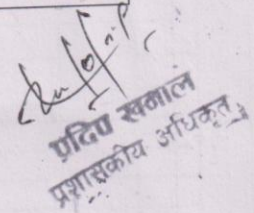 प्रदिप खनाल
प्रशासकीय अधिकृत